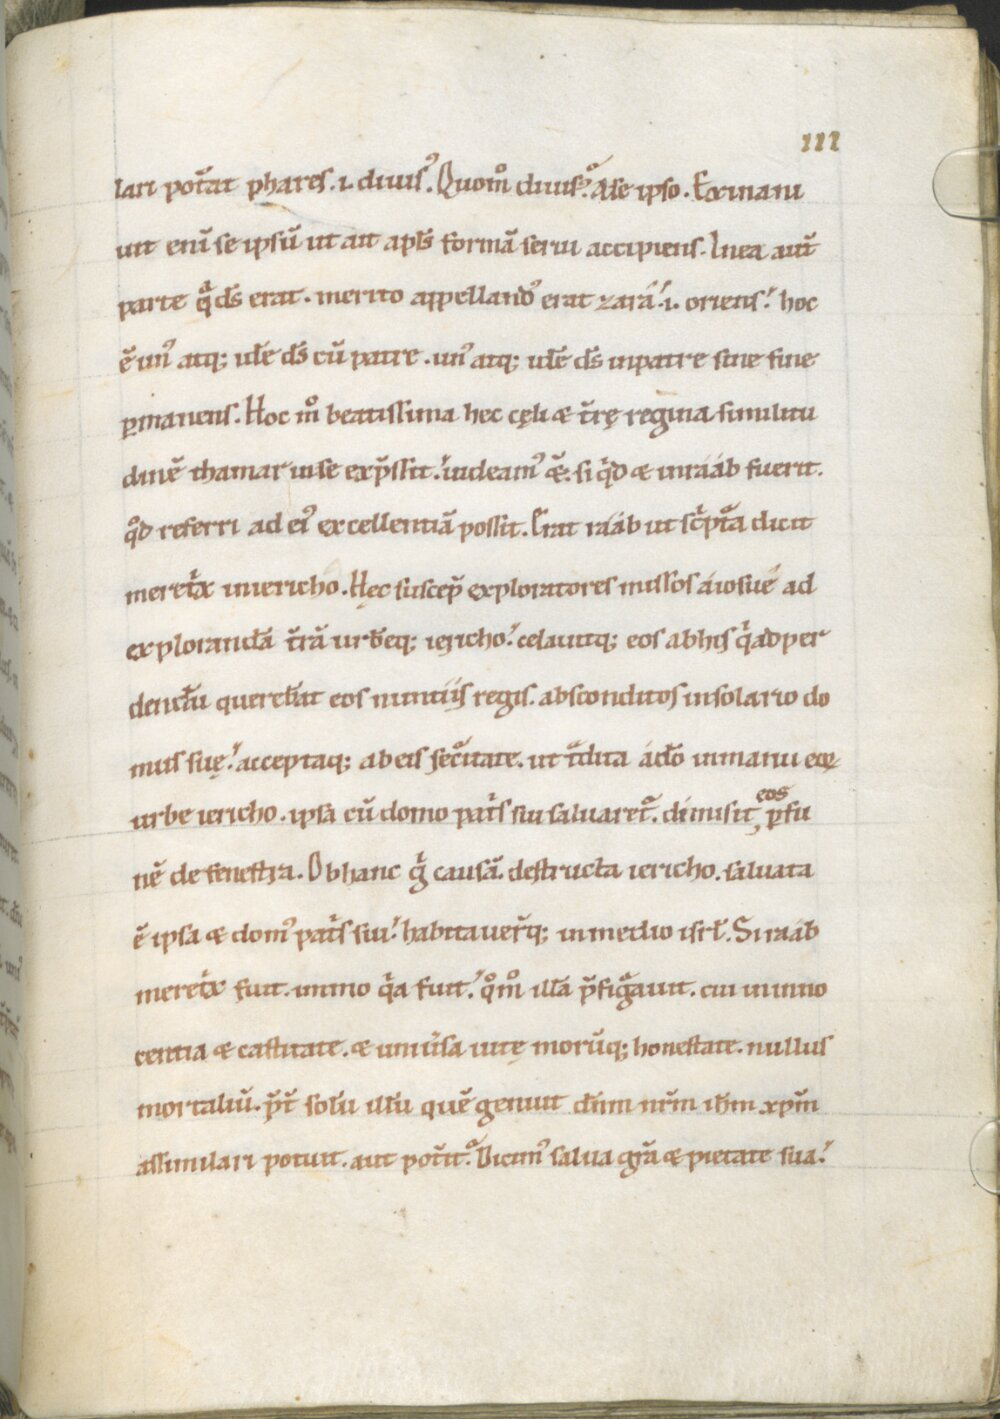 III
lari pot̄at phares .i. diuisꝰ. Quom̊ diuisꝰ? A se ipso. Exinani
uit eni᷑ se ipsū ut ait apl̄s formā serui accipiens. In ea aut̄
parte qͣ ds̄ erat. merito appellandꝰ erat zará .i. oriens. hoc
ē unꝰ atq; idē ds̄ cū patre. unꝰ atq; idē ds̄ in patre sine fine
ꝑmanens. Hoc m̊ beatissima hec cęli & t̄rę regina similitu
dinē thamar in se exp̄ssit. uideamꝰ &̄. si qͥd & in rááb fuerit.
qd̊ referri ad eiꝰ excellentiā possit. Erat rááb ut scͥptͣa dicit
meretͥx in iericho. Hęc suscep̄ exploratores missos á iosue ad
explorandā t̄rā urbēq; iericho. celauitq; eos ab his qͥ ad per
dendū querebāt eos nuntiis regis. absconditos in solario do
mus suę. acceptaq; ab eis secͥtate. ut tͣdita á dō in manu eoꝝ
urbe iericho. ipsa cū domo pat̄s sui saluaret᷑. dimisit eos ꝑ fu
nē de fenestra. Ob hanc gͥ causā. destructa iericho. saluata
ē ipsa & domꝰ pat̄s sui. habitauer̄q; in medio isrl̄. Si rááb
meretͥx fuit. immo qͥa fuit. qm̊̊ illā p̄figͣuit. cui in inno
centia & castitate. & uniūsa uitę morūq; honestate. nullus
mortaliū. p̄t̄ solū illū quē genuit dn̄m nr̄m ihm̄ xpm̄
assimilari potuit. aut pot̄it? Dicimꝰ salua gr̄a & pietate sua.